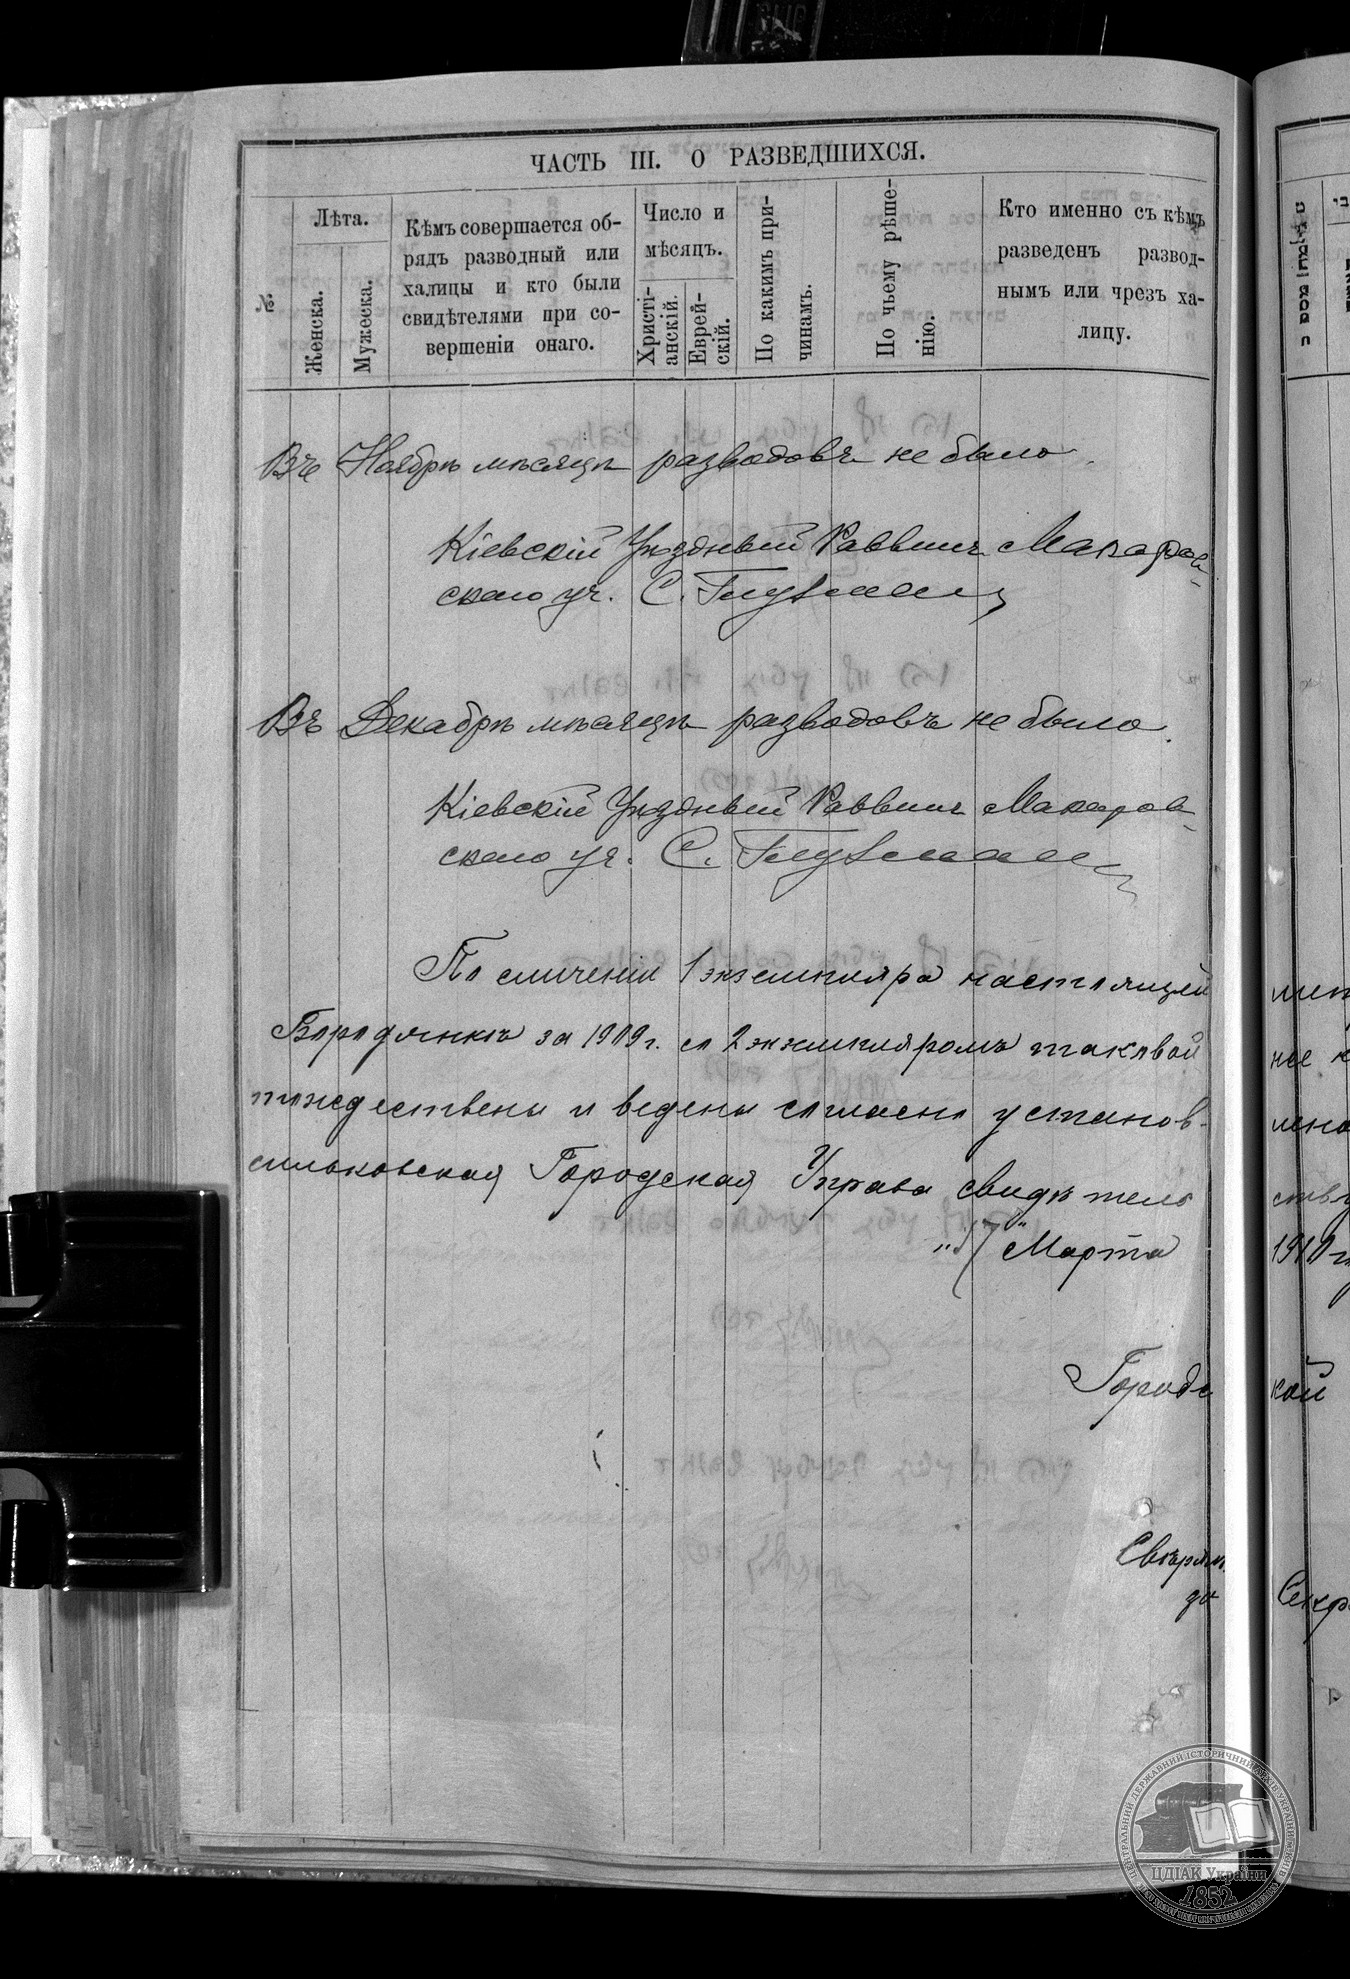 ЧАСТЬ III. О РАЗВЕДШИХСЯ.
№
Лѣта.
Женска.
Мужеска.
Кѣмъ совершается об-
рядъ разводный или
халицы и кто были
свидѣтелями при со-
вершеніи онаго.
Число и
мѣсяцъ.
Христі-
анскій.
Еврей-
скій.
По какимъ при-
чинамъ.
По чьему рѣше-
нію.
Кто именно съ кѣмъ
разведенъ развод-
нымъ или чрезъ ха-
лицу.
Въ Ноябрѣ мѣсяцѣ разводовъ не было.
Кіевскій Уѣздный Раввинъ Макаров-
скаго уч. С. Глузманъ
Въ Декабрѣ мѣсяцѣ разводовъ не было.
Кіевскій Уѣздный Раввинъ Макаров-
скаго уч. С. Глузманъ
По сличеніи 1 экземпляра настоящей
Бородянкѣ за 1909 г. со 2 экземпляромъ таковой
тождественны и ведены согласно установ-
сильковская Городская Управа свидѣтель
"17" Марта 1910 г
Городс кой
Свѣрялъ
за Секр
ЦЕНТРАЛЬНИЙ ДЕРЖАВНИЙ ІСТОРИЧНИЙ АРХІВ УКРАЇНИ
ЦДІАК України
1852